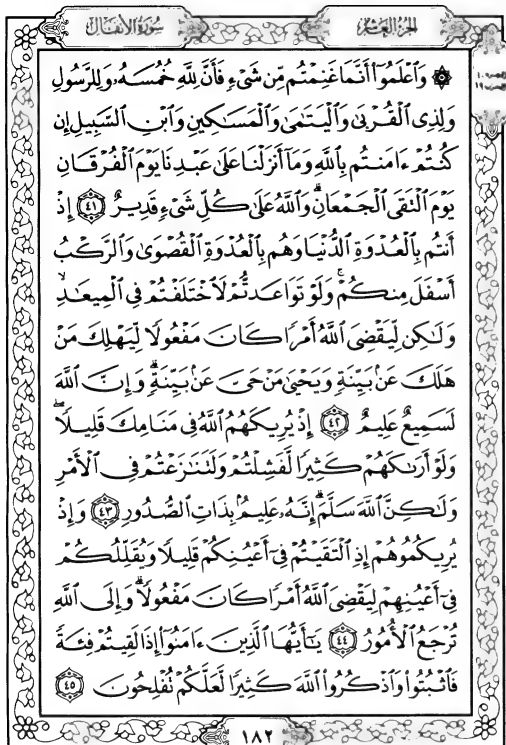 سُورَةُ الأَنفَال
الجُزءُ العَاشِرُ
۞ وَاعْلَمُوا أَنَّمَا غَنِمْتُم مِّن شَىْءٍ فَأَنَّ لِلَّهِ خُمُسَهُۥ وَلِلرَّسُولِ
وَلِذِى الْقُرْبَىٰ وَالْيَتَامَىٰ وَالْمَسَاكِينِ وَابْنِ السَّبِيلِ إِن
كُنتُمْ ءَامَنتُم بِاللَّهِ وَمَا أَنزَلْنَا عَلَىٰ عَبْدِنَا يَوْمَ الْفُرْقَانِ
يَوْمَ الْتَقَى الْجَمْعَانِ ۗ وَاللَّهُ عَلَىٰ كُلِّ شَىْءٍ قَدِيرٌ ٤١ إِذْ
أَنتُم بِالْعُدْوَةِ الدُّنْيَا وَهُم بِالْعُدْوَةِ الْقُصْوَىٰ وَالرَّكْبُ
أَسْفَلَ مِنكُمْ ۚ وَلَوْ تَوَاعَدتُّمْ لَاخْتَلَفْتُمْ فِى الْمِيعَادِ ۙ
وَلَٰكِن لِّيَقْضِىَ اللَّهُ أَمْرًا كَانَ مَفْعُولًا لِّيَهْلِكَ مَنْ
هَلَكَ عَنۢ بَيِّنَةٍ وَيَحْيَىٰ مَنْ حَىَّ عَنۢ بَيِّنَةٍ ۗ وَإِنَّ اللَّهَ
لَسَمِيعٌ عَلِيمٌ ٤٢ إِذْ يُرِيكَهُمُ اللَّهُ فِى مَنَامِكَ قَلِيلًا ۖ
وَلَوْ أَرَاكَهُمْ كَثِيرًا لَّفَشِلْتُمْ وَلَتَنَازَعْتُمْ فِى الْأَمْرِ
وَلَٰكِنَّ اللَّهَ سَلَّمَ ۗ إِنَّهُۥ عَلِيمٌۢ بِذَاتِ الصُّدُورِ ٤٣ وَإِذْ
يُرِيكُمُوهُمْ إِذِ الْتَقَيْتُمْ فِى أَعْيُنِكُمْ قَلِيلًا وَيُقَلِّلُكُمْ
فِى أَعْيُنِهِمْ لِيَقْضِىَ اللَّهُ أَمْرًا كَانَ مَفْعُولًا ۗ وَإِلَى اللَّهِ
تُرْجَعُ الْأُمُورُ ٤٤ يَا أَيُّهَا الَّذِينَ ءَامَنُوا إِذَا لَقِيتُمْ فِئَةً
فَاثْبُتُوا وَاذْكُرُوا اللَّهَ كَثِيرًا لَّعَلَّكُمْ تُفْلِحُونَ ٤٥
١٨٢